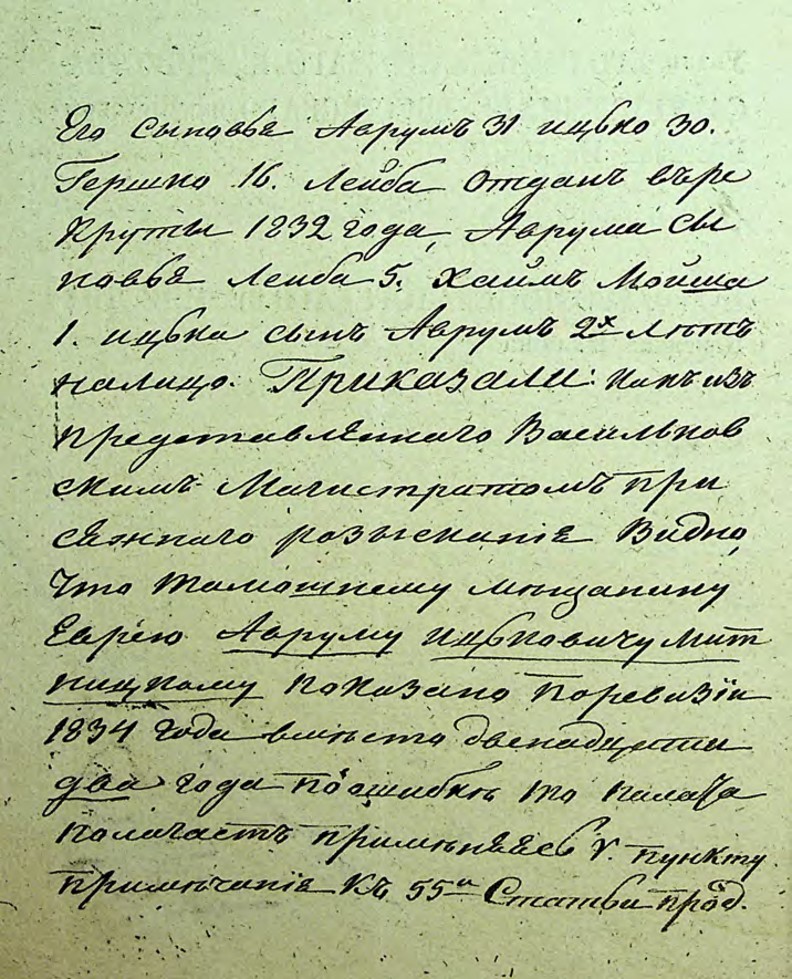 Его сыновья Аврумъ 31 ицько 30.
Гершко 16. Лейба отданъ въре
круты 1832 года, Аврума сы
новья Лейба 5. хаимъ Мойша
1. ицька сынъ Аврумъ 2х лѣтъ
налицо. Приказали: какъ изъ
представленнаго Васильков
скимъ Магистратомъ при
сяжнаго розысканія видно,
что тамошнему мѣщанину
Еврею Авруму ицьковичу Мит
ницкому показано поревизіи
1834 года вмѣсто двенадцати
два года поошибкѣ то палата
полагаетъ примѣняясь V. пункту
примѣчанія къ 55й Статьи прод.